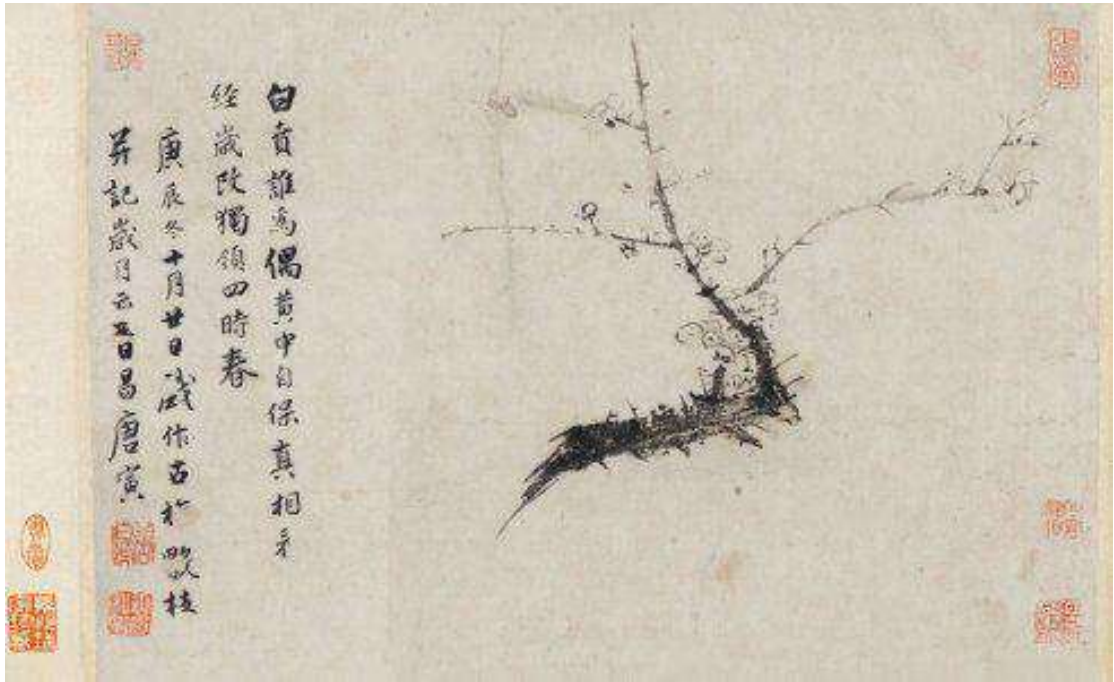 白賁誰為偶黃中自保真相看
經歲改獨領四時春
庚辰冬十月廿日戲作古梅數枝
并記歲月云吾昌唐寅